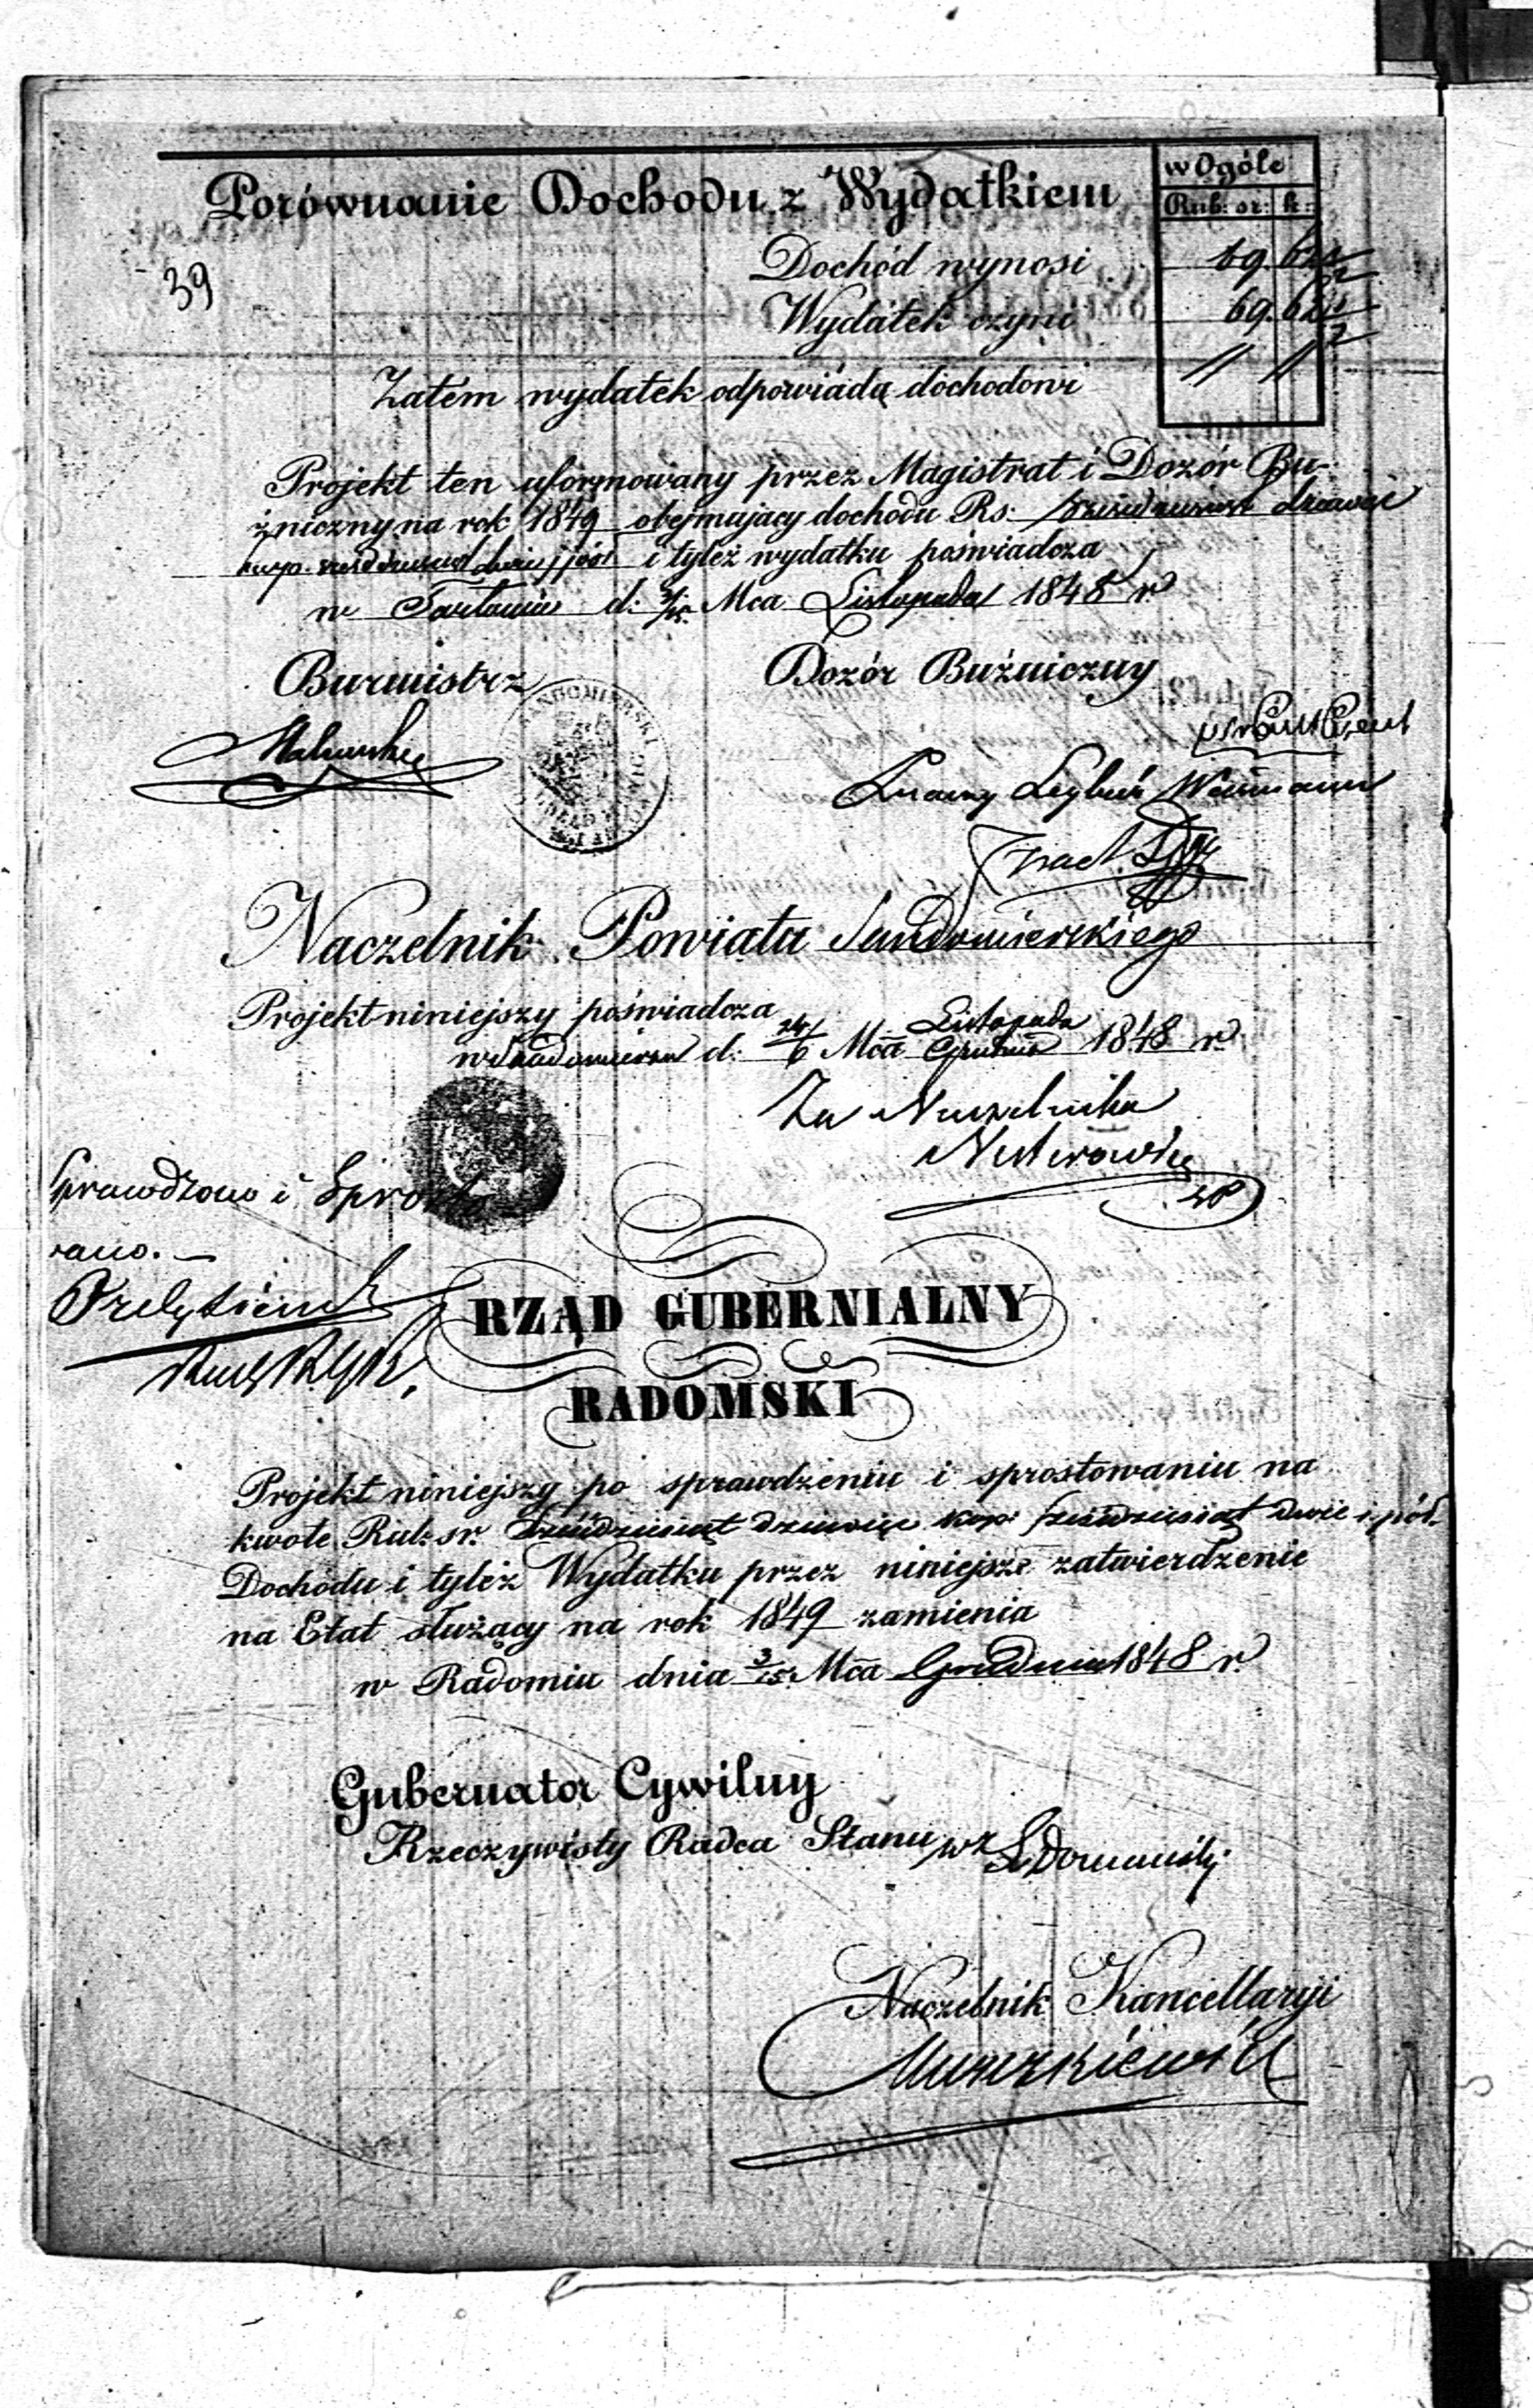 w Ogóle
Porównanie Dochodu z Wydatkiem
Rub: sr: k:
Dochód wynosi 69. 62 1/2
39
Wydatek czyni 69. 62 1/2
Zatem wydatek odpowiada dochodowi // //
Projekt ten uformowany przez Magistrat i Dozór Bu-
żniczny na rok 1849 obejmujący dochodu Rs: sześćdziesiąt dziewięć
kop. sześćdziesiąt dwie i pół i tyleż wydatku poświadcza
w Tarłowie d: Mca Listopada 1848 r
Burmistrz Dozór Bóźniczny
Leybuś
Naczelnik Powiatu Sandomierskiego
Projekt niniejszy poświadcza
w Sandomierzu d: 24/6 Mca Listopada/Grudnia 1848 r.
Za Naczelnika
Sprawdzono i Sprosto
wano.
RZĄD GUBERNIALNY
RADOMSKI
Projekt niniejszy po sprawdzeniu i sprostowaniu na
kwotę Rub: sr. sześćdziesiąt dziewięć kop: sześćdziesiąt dwie i pół
Dochodu i tyleż Wydatku przez niniejsze zatwierdzenie
na Etat służący na rok 1849 zamienia
w Radomiu dnia 3/15 Mca Grudnia 1848 r.
Gubernator Cywilny
Rzeczywisty Radca Stanu wz
Naczelnik Kancellaryi